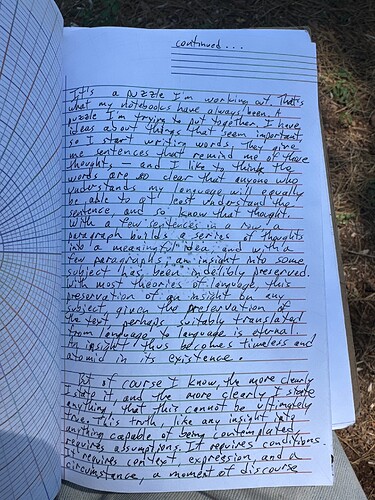 continued...
It's a puzzle I'm working out. That's
what my notebooks have always been. A
puzzle I'm trying to put together. I have
ideas about things that seem important
so I start writing words, they give
me sentences that remind me of those
thoughts. and I like to think the
words are so clear that anyone who
understands my language will equally
be able to at least understand the
sentence and so know that thought.
With a few sentences in a row, a
paragraph builds a series of thoughts
into a meaningful idea, and with a
few paragraphs, an insight into some
subject has been indelibly preserved.
With most theories of language, this
preservation of an insight on any
subject, given the preservation of
the text perhaps suitably translated
from language to language is eternal.
An insight thus becomes timeless and
atomid in its existence.
But of course I know, the more clearly
I state it, and the more clearly I state
anything, that this cannot be ultimately
true. This truth, like any insight into
anything capable of being contemplated
requires assumptions. It requires conditions.
It requires context, expression, and a
circumstance, a moment of discourse